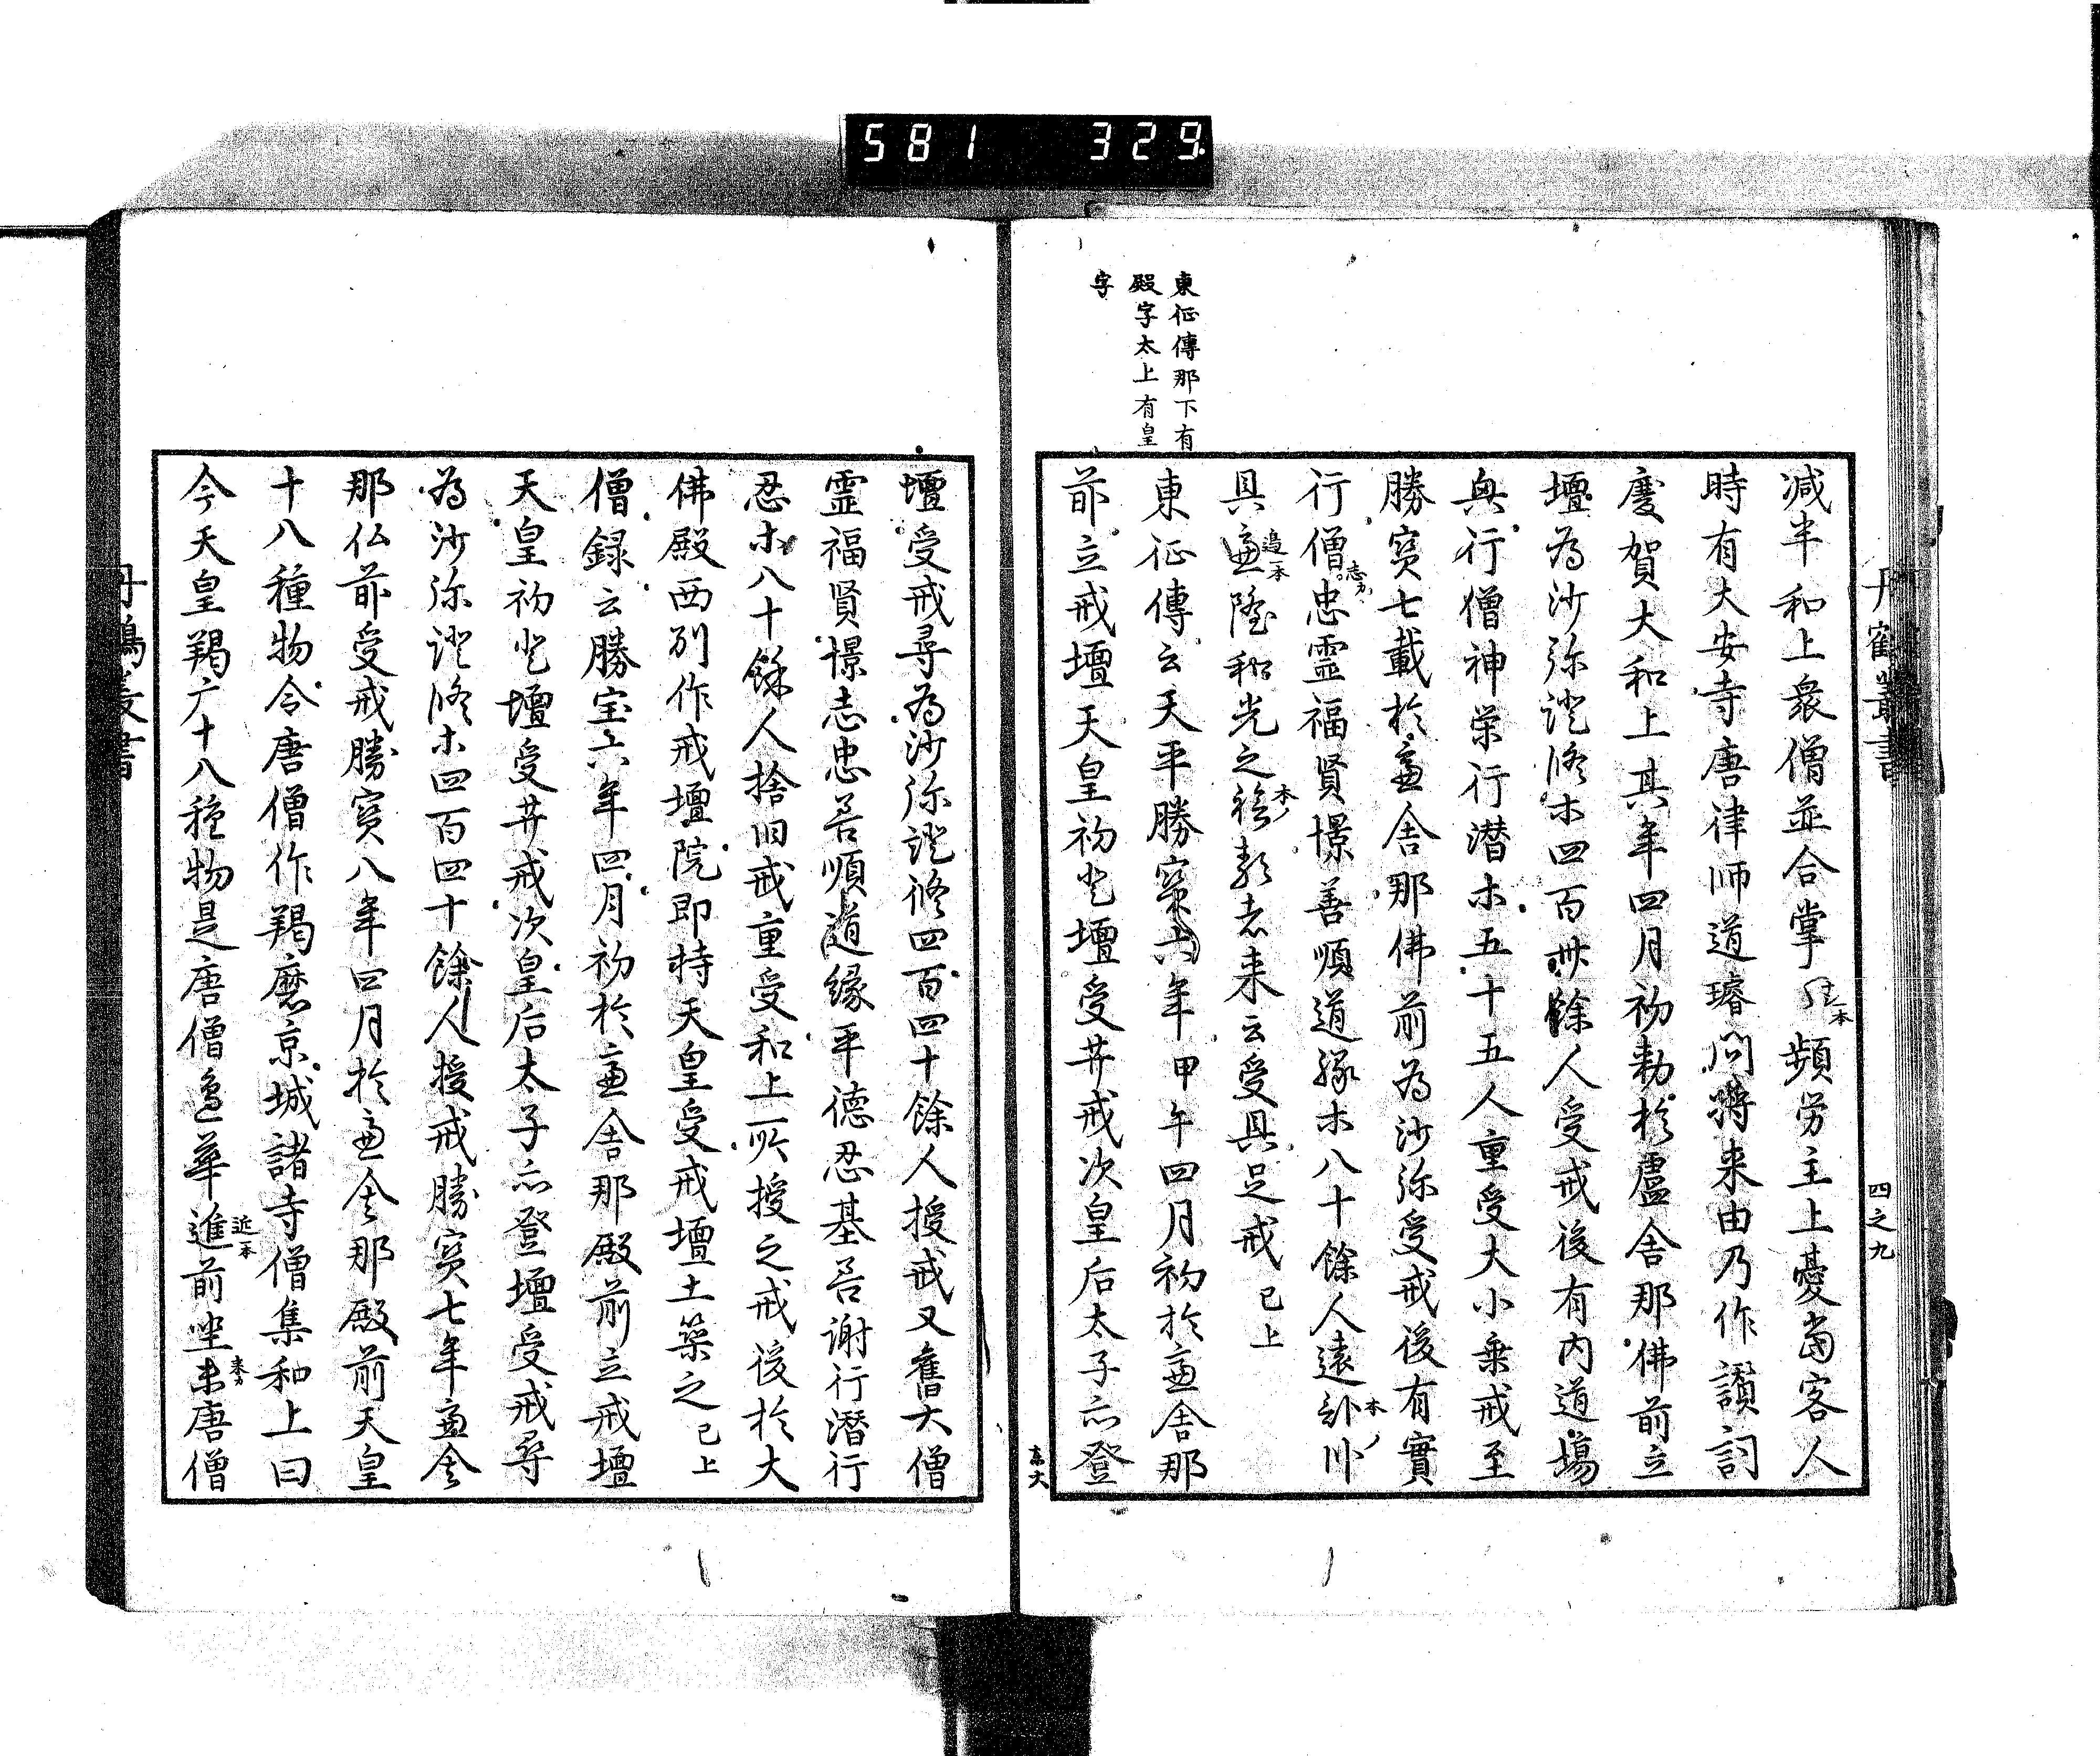 581 329
丹鶴叢書
四之九
東征傳那下有
殿字太上有皇
字
減半和上衆僧並合掌頻労主上憂當客人
時有大安寺唐律師道璿問將来由乃作讃詞
慶賀大和上其年四月初勅於盧舎那佛前立
壇為沙弥證修木四百卌餘人受戒後有内道場
興行僧神栄行潜木五十五人重受大小乗戒至
勝寳七載於盧舎那佛前為沙弥受戒後有實
行僧忠霊福賢憬善順道縁木八十餘人遠
志カ
本ノ
具盧隆和光之 志来云受具足戒 已上
邉一本
本ノ
東征傳云天平勝寳六年甲午四月初於盧舎那
前立戒壇天皇初登壇受菩戒次皇后太子亦登
東大
壇受戒尋為沙弥證修四百四十餘人授戒又舊大僧
霊福賢憬志忠善順道縁平徳忍基善謝行潜行
忍木八十餘人捨旧戒重受和上所授之戒後於大
佛殿西別作戒壇院即持天皇受戒壇土築之 已上
僧録云勝宝六年四月初於盧舎那殿前立戒壇
天皇初登壇受菩戒次皇后太子亦登壇受戒尋
為沙弥證修木四百四十餘人授戒勝寳七年盧舎
那仏前受戒勝寳八年四月於盧舎那殿前天皇
十八種物令唐僧作羯磨京城諸寺僧集和上曰
今天皇羯广十八種物是唐僧 華進前坐未唐僧
近一本
来カ
丹鶴叢書